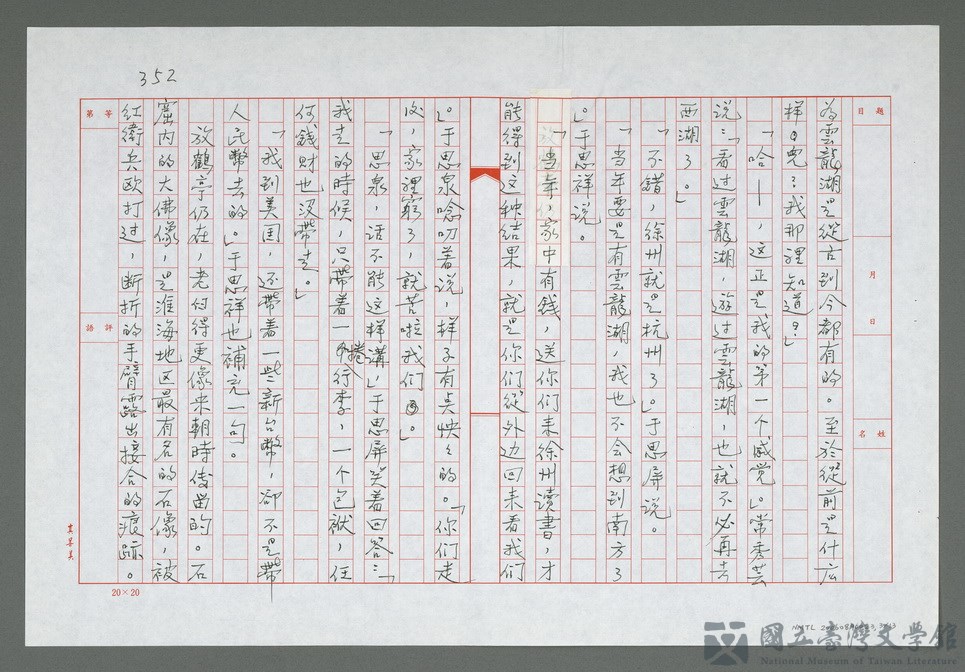 352
題目
月
日
姓名
為雲龍湖是從古到今都有的。至於從前是什庅
样的兒?我那裡知道?」
「哈——,这正是我的第一个感觉。」常秀芸
說:「看过雲龍湖,遊过雲龍湖,也就不必再去
西湖了。」
「不錯,徐州就是杭州了。」于思屏说。
「当年要是有雲龍湖,我也不会想到南方了
。」于思祥说。
「当年,家中有錢,送你们来徐州读書,才
能得到这种结果,就是你们從外边回来看我们
。」于思泉唸叨着说,样子有点怏怏的。「你们走
后,家裡窮了,就苦啦我们。」
「思泉,话不能这样講,」于思屏笑着回答:「
我走的時候,只带着一捲行李,一个包袱,任
何錢財也没带走。」
「我到美国,还帶着一些新台幣,卻不是帶
人民幣去的。」于思祥也補充一句。
放鶴亭仍在,老的得更像宋朝時候留的。石
窟内的大佛像,是淮海地区最有名的石像,被
红衛兵欧打过,断折的手臂露出接合的痕跡。
等第
評語
20×20
國立臺灣文學館
National Museum of Taiwan Literature